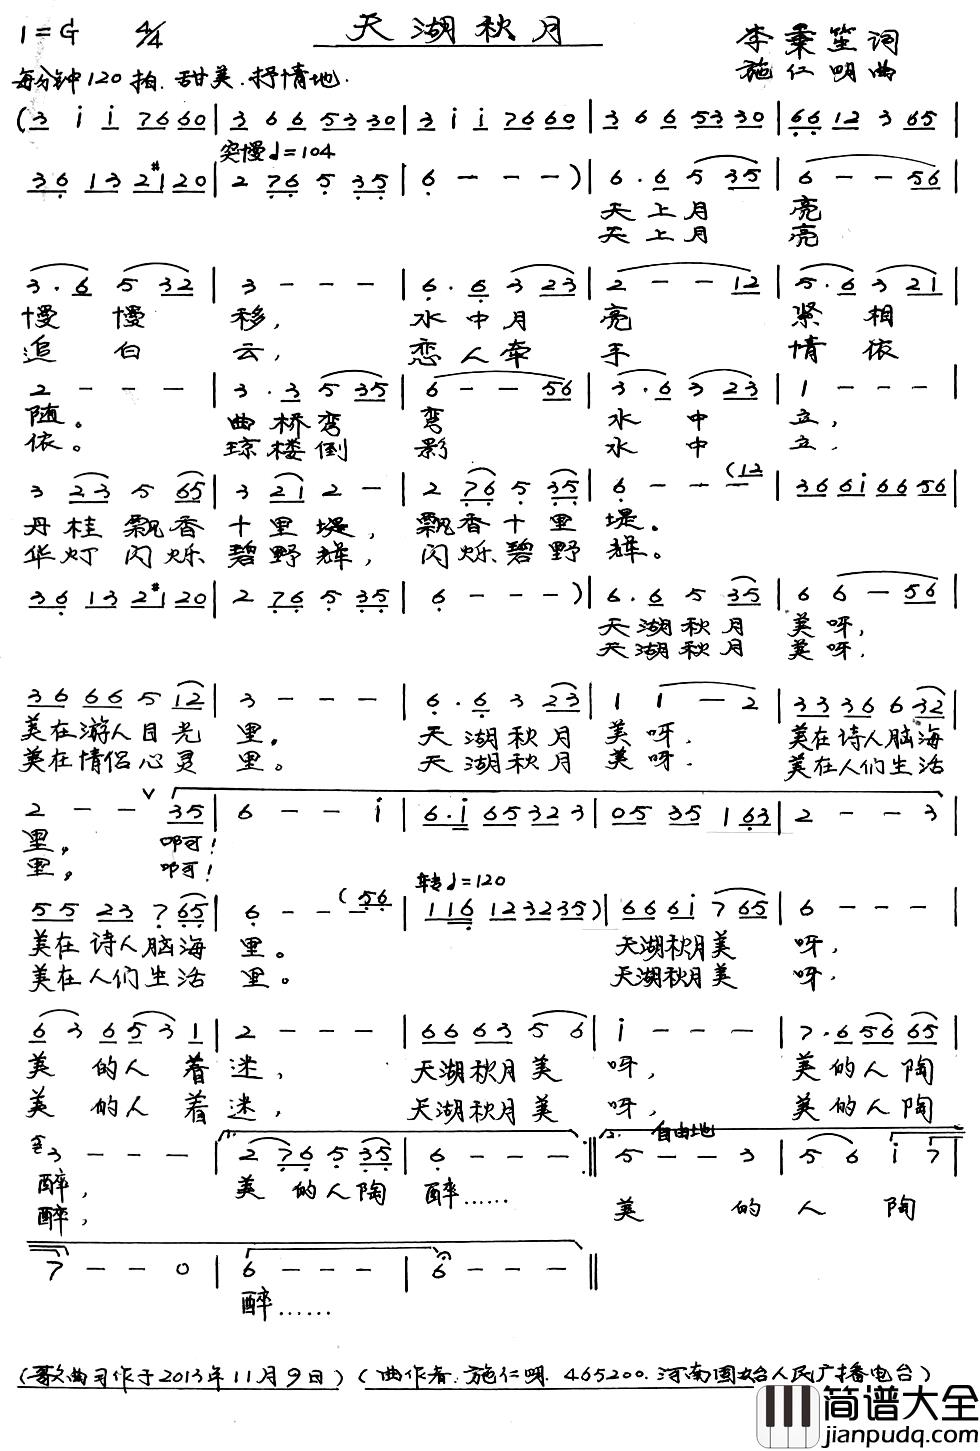 1=G 4/4 天湖秋月 李秉笙词
每分钟120拍.甜美.抒情地. 施仁明曲
(3 i i 7660 | 3 6 6 5330 | 3 i i 7660 | 3 6 6 5330 | 66 12 3 65 |
突慢♩=104
36 13 2#120 | 2 76 5 35 | 6 - - - ) | 6·6 5 35 | 6 - - 56 |
天上月 亮
天上月 亮
3·6 5 32 | 3 - - - | 6·6 3 23 | 2 - - 12 | 5·6 3 21 |
慢 慢 移, 水中月 亮 紧 相
追 白 云, 恋人牵 手 情 依
2 - - - | 3·3 5 35 | 6 - - 56 | 3·6 3 23 | 1 - - - |
随。 曲桥弯 弯 水 中 立,
依。 琼楼倒 影 水 中 立.
3 23 5 65 | 3 21 2 - | 2 76 5 35 | 6 - - (12 | 366i6656 |
丹桂飘香十里堤, 飘香十里堤。
华灯闪烁碧野辉, 闪烁碧野辉。
36 13 2#120 | 2 76 5 35 | 6 - - - ) | 6·6 5 35 | 6 6 - 56 |
天湖秋月 美呀,
天湖秋月 美呀.
36 66 5 12 | 3 - - - | 6·6 3 23 | 1 1 - 2 | 33 36 6 32 |
美在游人目光 里。 天湖秋月 美呀. 美在诗人脑海
美在情侣心灵 里。 天湖秋月 美呀. 美在人们生活
2 - - ∨ 35 | 6 - - i | 6·i 65323 | 05 35 163 | 2 - - 3 |
里。 啊!
里。 啊!
转♩=120
55 23 7 65 | 6 - - (56 | 116 123235) | 666i 7 65 | 6 - - - |
美在诗人脑海 里。 天湖秋月美 呀.
美在人们生活 里。 天湖秋月美 呀.
6 3 653 1 | 2 - - - | 6663 5 6 | i - - - | 7·656 65 |
美 的人 着 迷, 天湖秋月美 呀, 美的人陶
美 的人 着 迷, 天湖秋月美 呀, 美的人陶
1. 2. 自由地
3 - - - | 2 76 5 35 | 6 - - - :‖ 5 - - 3 | 5 6 i 7 |
醉, 美 的人陶 醉…… 美 的 人 陶
醉,
7 - - 0 | 6 - - - | 6 - - - ‖
醉……
(歌曲习作于2013年11月9日) (曲作者.施仁明. 465200.河南固始人民广播电台)
简谱大全
jianpudq.com